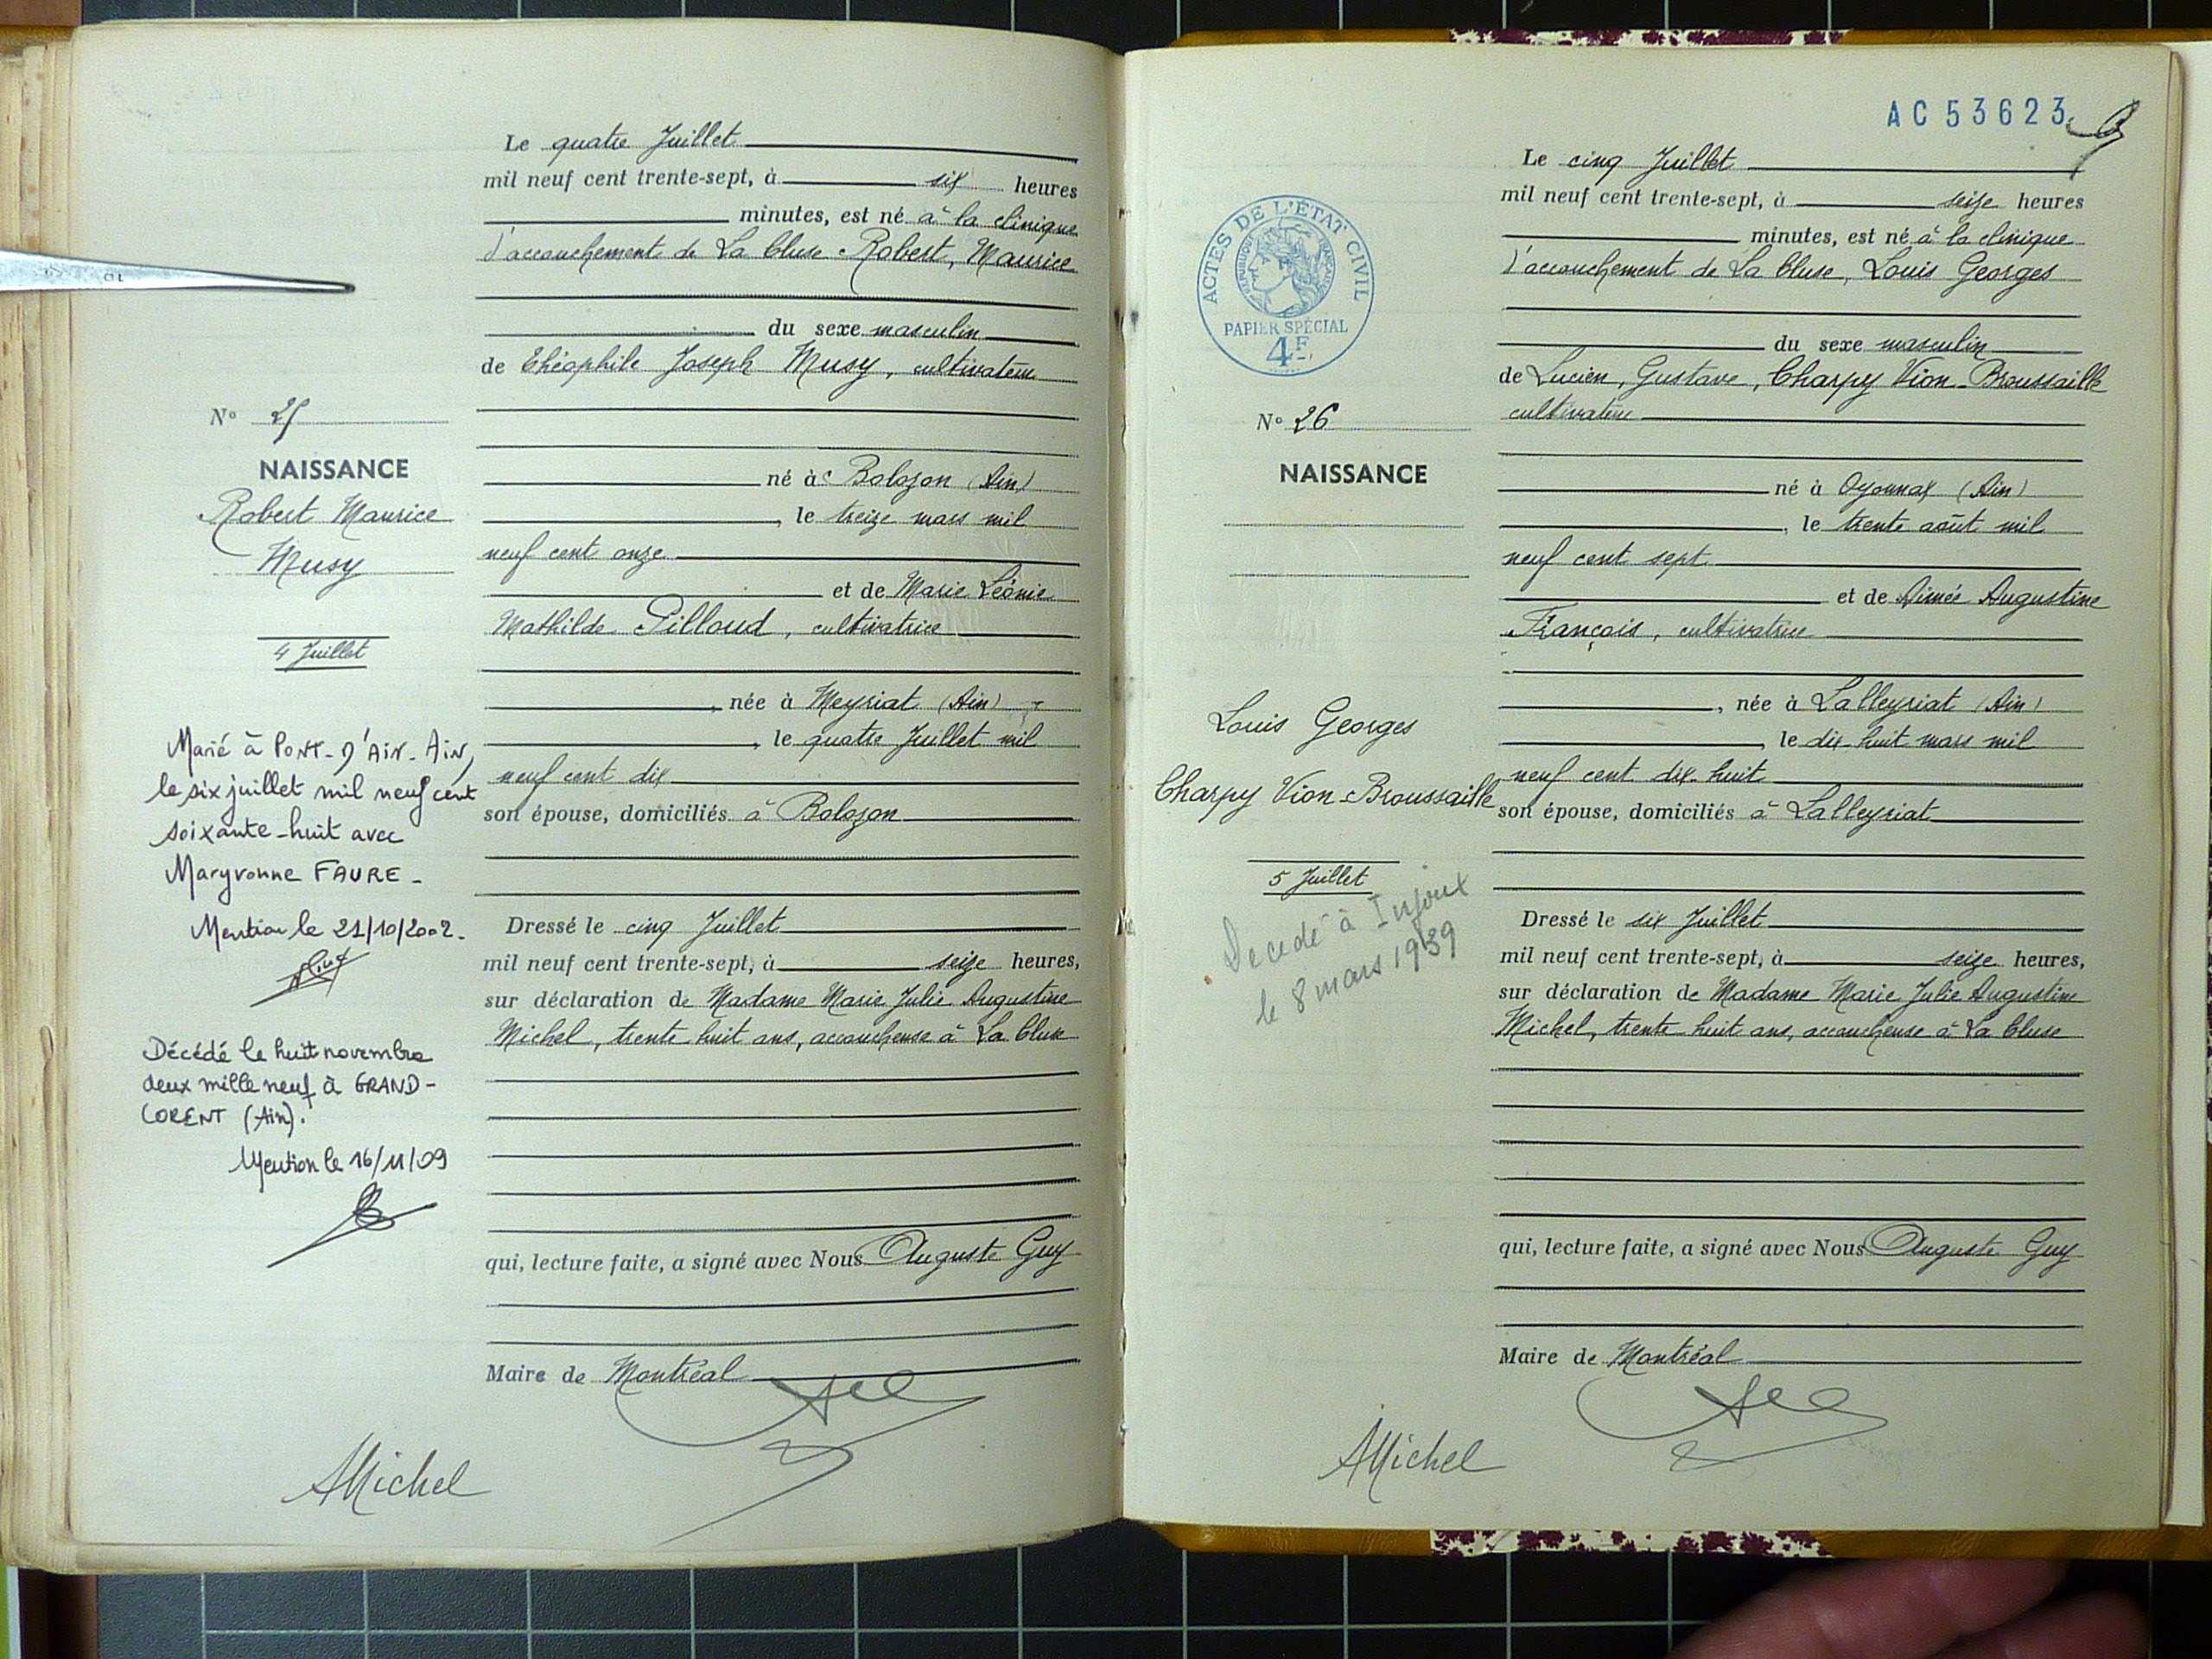 Le quatre Juillet
mil neuf cent trente-sept, à six heures
minutes, est né à la clinique
d'accouchement de La Cluse Robert, Maurice
du sexe masculin
de Théophile Joseph Musy, cultivateur
né à Bolozon (Ain)
, le treize mars mil
neuf cent onze
et de Marie Léonie
Mathilde Pilloud, cultivatrice
, née à Meyriat (Ain)
, le quatre Juillet mil
neuf cent dix
son épouse, domiciliés à Bolozon
Dressé le cinq Juillet
mil neuf cent trente-sept, à seize heures,
sur déclaration de Madame Marie Julie Augustine
Michel, trente huit ans, accoucheuse à La Cluse
qui, lecture faite, a signé avec Nous Auguste Guy
Maire de Montréal
AMichel
N° 25
NAISSANCE
Robert Maurice
Musy
4 Juillet
Marié à PONT-D'AIN-AIN,
le six juillet mil neuf cent
soixante-huit avec
Maryvonne FAURE -
Mention le 21/10/2002.
Décédé le huit novembre
deux mille neuf à GRAND-
CORENT (Ain).
Mention le 16/11/09
AC53623
Le cinq Juillet
mil neuf cent trente-sept, à seize heures
minutes, est né à la clinique
d'accouchement de La Cluse, Louis Georges
du sexe masculin
de Lucien, Gustave, Charpy Vion-Broussaille
cultivateur
né à Oyonnax (Ain)
, le trente août mil
neuf cent sept
et de Aimée Augustine
François, cultivatrice
, née à Lalleyriat (Ain)
, le dix-huit mars mil
neuf cent dix-huit
son épouse, domiciliés à Lalleyriat
Dressé le six Juillet
mil neuf cent trente-sept, à seize heures,
sur déclaration de Madame Marie Julie Augustine
Michel, trente huit ans, accoucheuse à La Cluse
qui, lecture faite, a signé avec Nous Auguste Guy
Maire de Montréal
AMichel
ACTES DE L'ÉTAT CIVIL
RÉPUBLIQUE FRANÇAISE
PAPIER SPÉCIAL
4F
N° 26
NAISSANCE
Louis Georges
Charpy Vion-Broussaille
5 Juillet
Décédé à Injoux
le 8 mars 1939